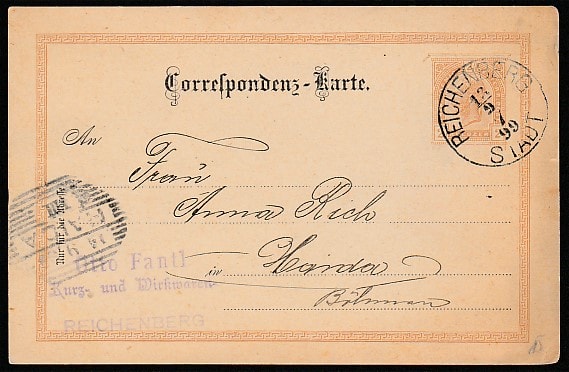 Correspondenz-Karte.
REICHENBERG
13
9
7
99
STADT
An
Frau
Anna Rich
in Haida
Böhmen
Nur für die Adresse
Otto Fantl
Kurz- und Wirkwaren
REICHENBERG